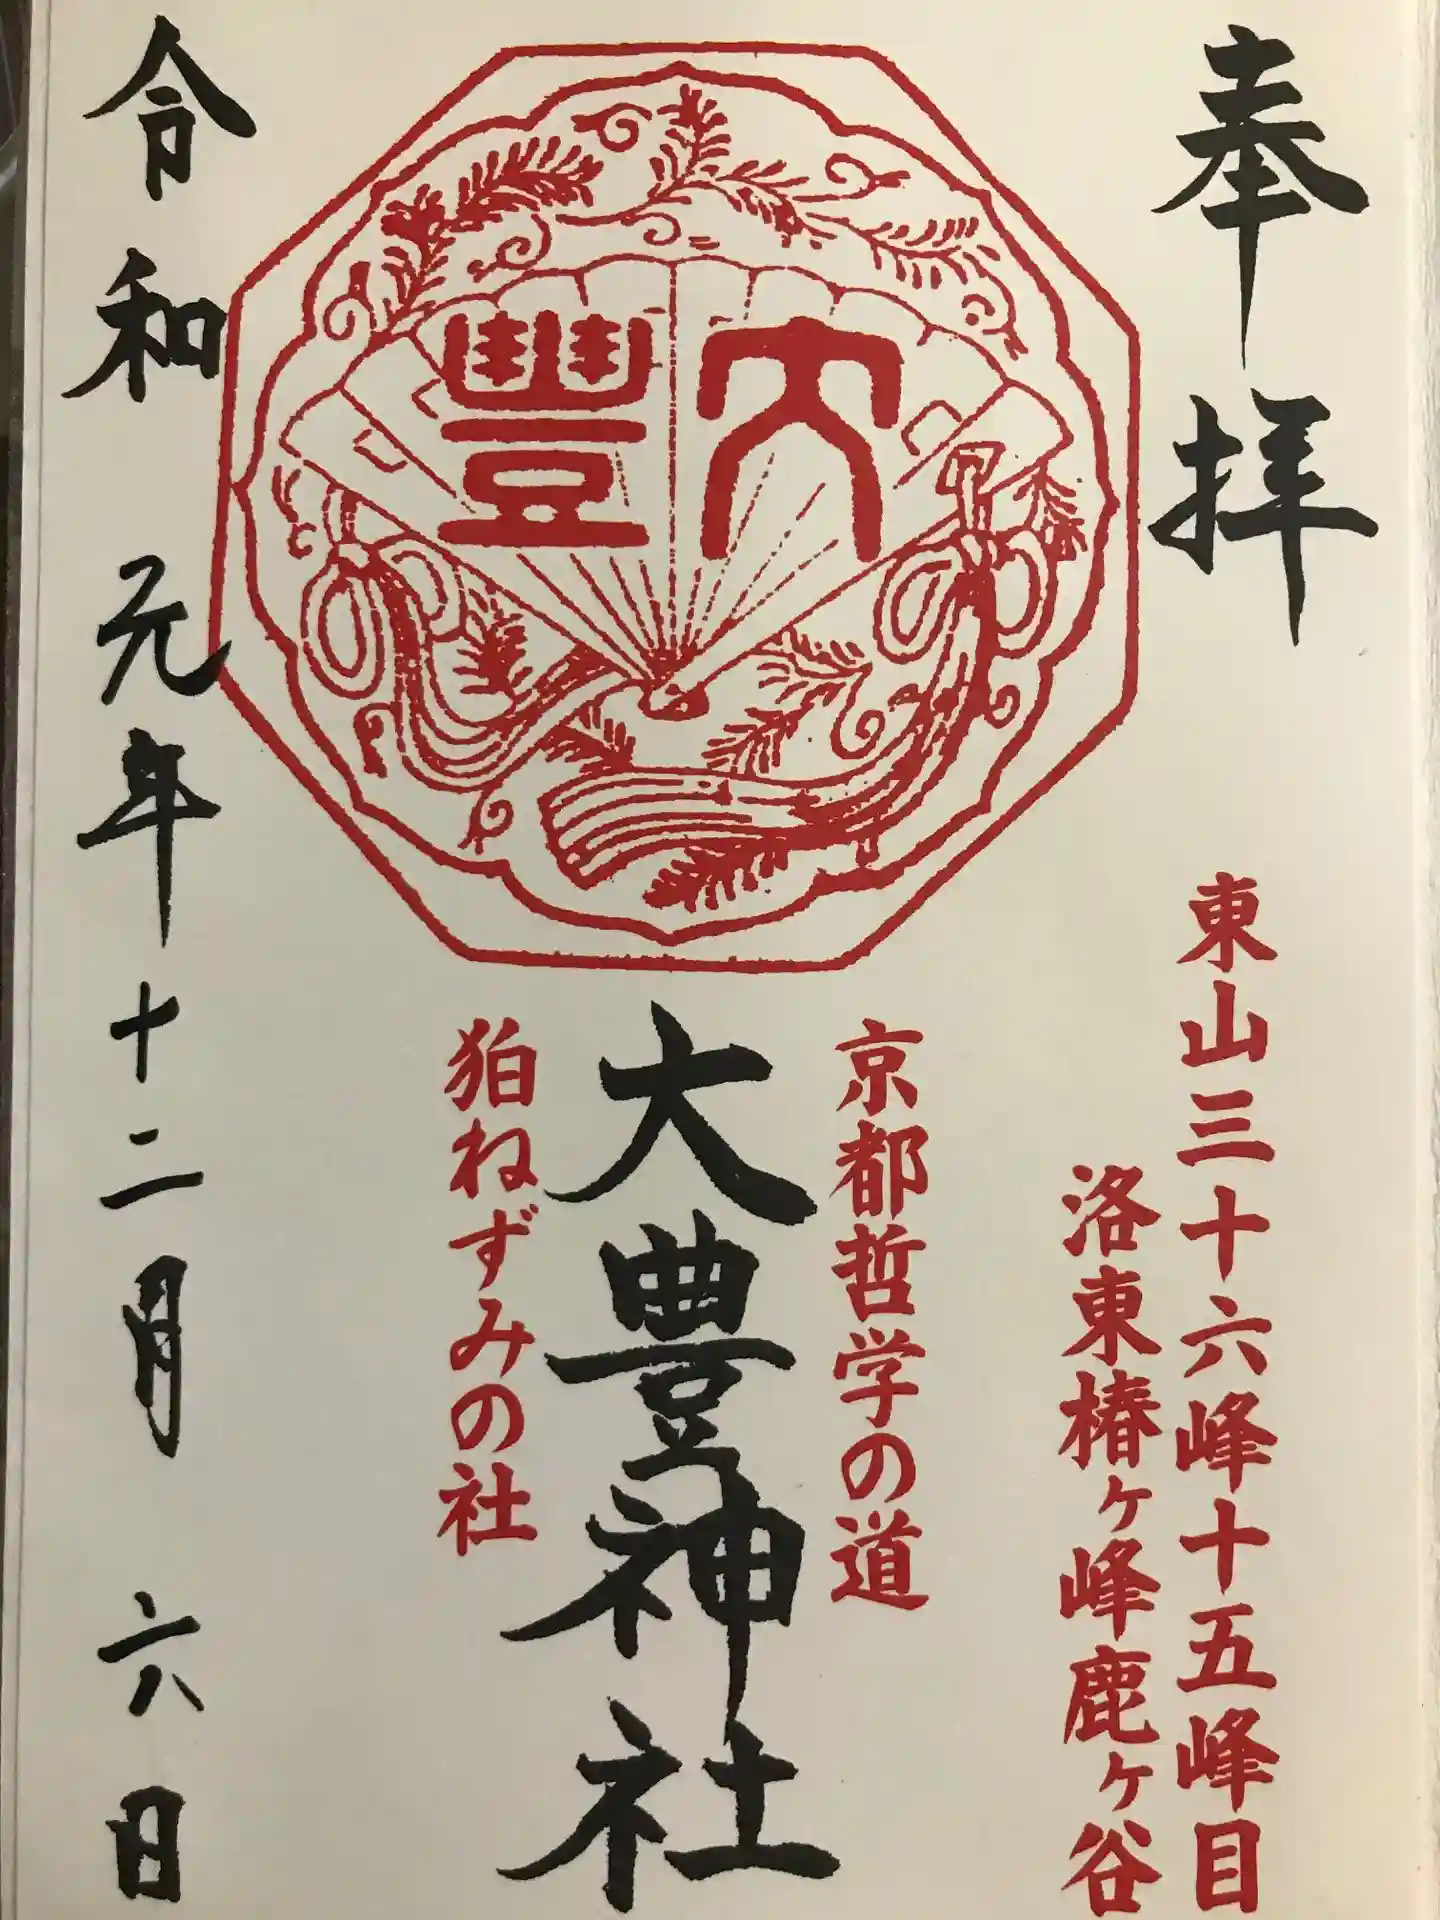 奉拝
東山三十六峰十五峰目
洛東椿ヶ峰鹿ヶ谷
京都哲学の道
大豊
大豊神社
狛ねずみの社
令和元年十二月六日